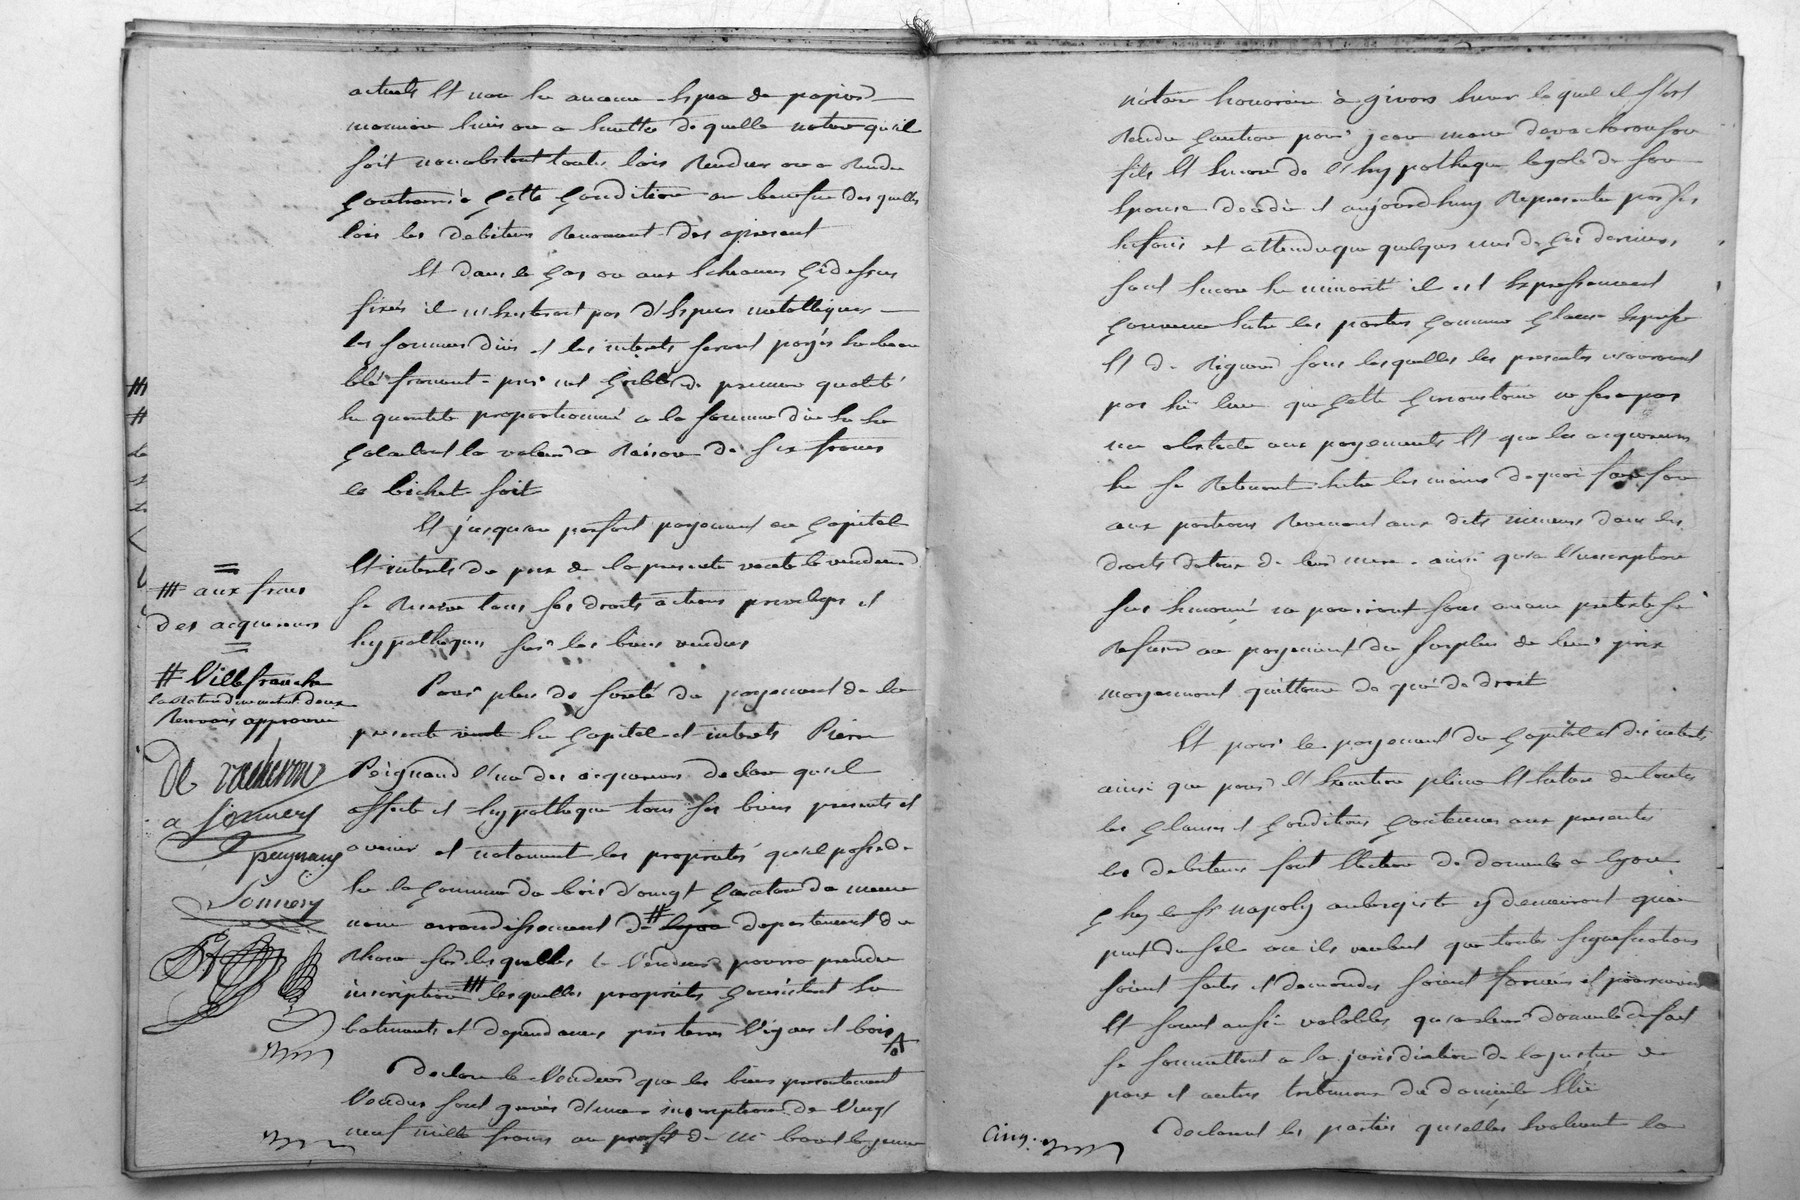 actuels Et non En aucune Espece de papier
monnoie Emis ou a Emettre de quelle nature qu'il
soit nonobstant toutes lois Rendues ou a Rendre
Contraire a Cette Condition au benefice des quelles
lois les debiteurs Renoncent des apresent
Et dans le Cas ou aux Echeances Cidessus
fixés il n'Existeroit pas d'Especes metalliques
les sommes dües et les interets seront payés En beau
blé froment pur net Criblé de premiere qualité
En quantité proportionné a la somme düe En En
Calculant la valeur a Raison de six francs
le bichet soit
Et jusqu'au parfait payement en Capital
Et interets du prix de la presente vente le vendeur
se Reserve tous ses droits actions privileges et
hypotheques sur les biens vendus
Pour plus de sureté du payement de la
presente vente En Capital et interets Pierre
Peignaud l'un des acquereurs declare qu'il
affecte et hypotheque tous ses biens presents et
avenir et notament les proprietés qu'il possede
En la Commune du bois d'oingt Canton du meme
nom arrondissement de # lyon departement du
Rhone sur les quelles le Vendeur pourra prendre
inscription ## lesquelles proprietés Consistent En
batiments et dependances prés terres Vignes et bois
Declare le Vendeur que les biens presentement
Vendus sont grevés d'une inscription de Vingt
neuf mille francs au profit de Mr le jeune
## aux frais
des acquereurs
# Villefranche
la Rature d'un mot et deux
Renvois approuvés
De vacheron
a Sonnery
peignaud
Sonnery
notaire honoraire à givors Envers lequel il s'est
Rendu Caution pour jean marie devacheron son
fils Et Encore de l'hypotheque legale de son
Epouse decedée et aujourd'huy Representée par ses
Enfans et attendu que quelques uns de Ces derniers
sont Encore En minorité il est Expressement
Convenu Entre les parties Comme Clause Expresse
Et de Rigueur sans lesquelles les presentes n'auroient
pas Eu lieu que Cette Circonstance ne sera pas
un obstacle aux payements Et que les acquereurs
En se Retenant Entre les mains de quoi faire face
aux portions Revenant aux dits mineurs dans les
droits dotaux de leur mere ainsi qu'a l'inscription
sus Enoncée ne pourront sous aucun pretexte se
Refuser au payement du surplus de leur prix
moyennant quittance de qui de droit
Et pour le payement du Capital et des interets
ainsi que pour l'Execution pleine Et Entiere de toutes
les Clauses et Conditions Contenues aux presentes
les debiteurs font Election de domicile a lyon
Chez le Sr napoly aubergiste y demeurant quai
port du sel ou ils veulent que toutes significations
soient faites et demandes soient formées et poursuivies
Et soient aussi valables qu'a leur domicile de fait
se soumettent a la jurisdiction de la justice de
paix et autres tribunaux du domicile Elu
Declarent les parties qu'elles Evaluent la
Cinq.